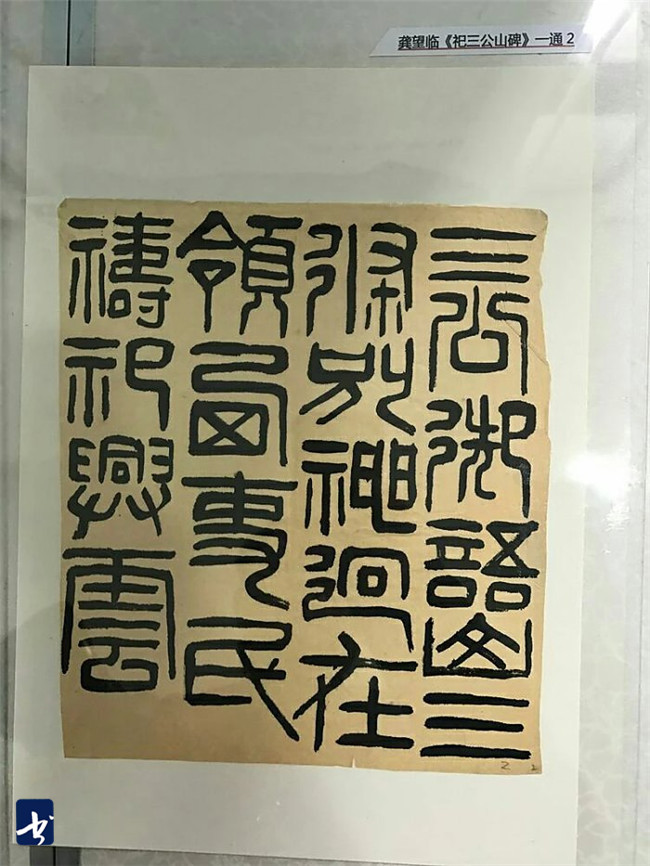 龚望临《祀三公山碑》一通 2
三公御語山三
條別神迥在
領西吏民
禱祀興雲